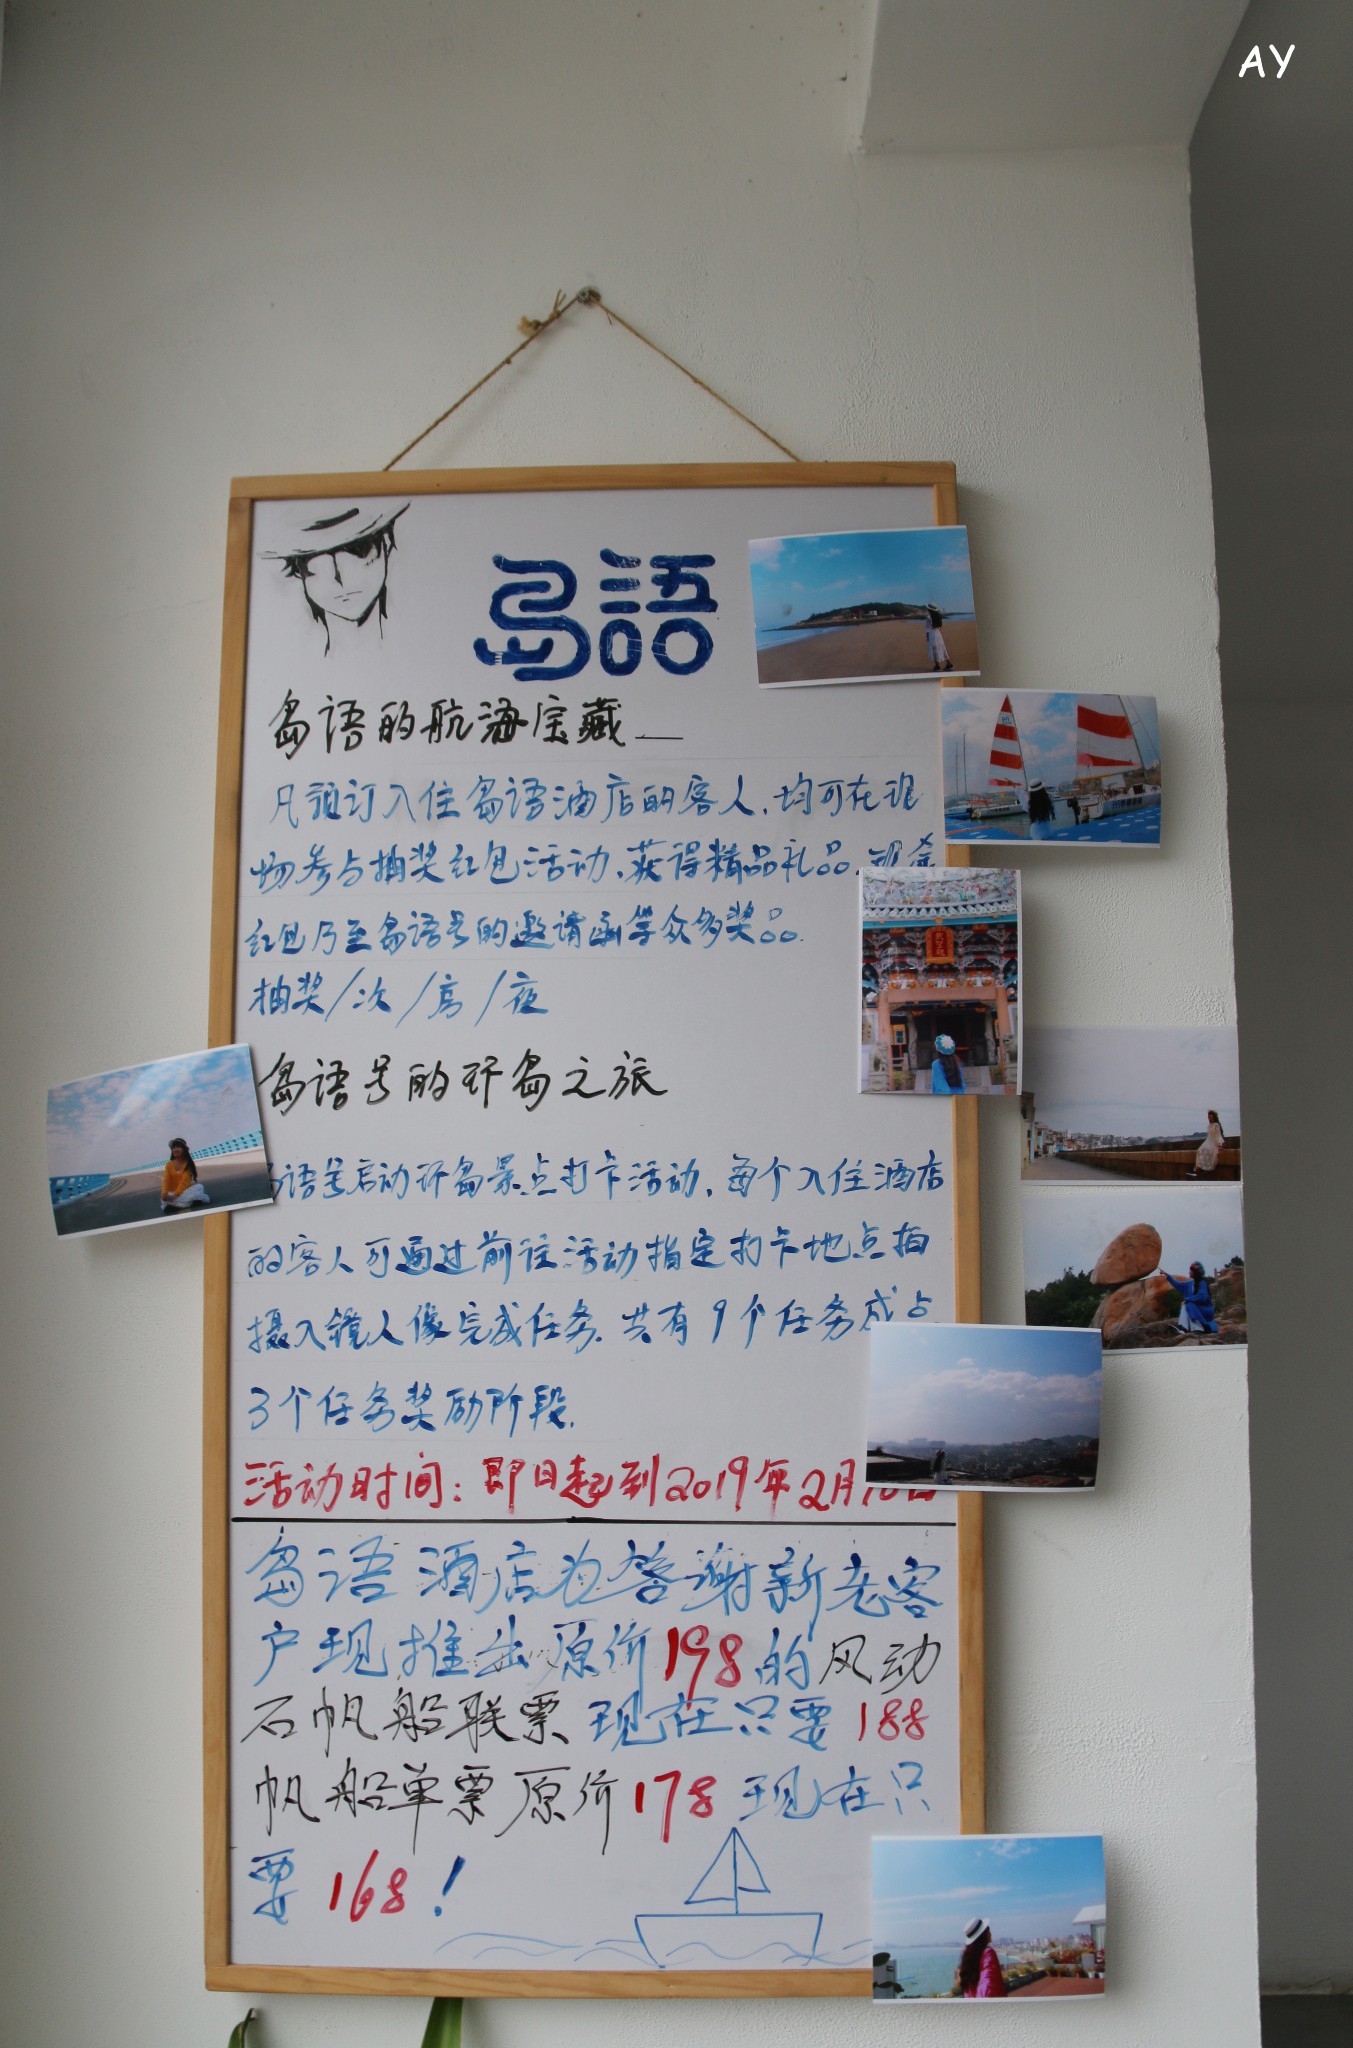 AY
岛語
岛语的航海宝藏
凡预订入住岛语酒店的客人，均可在现
场参与抽奖红包活动，获得精品礼品、现金
红包乃至岛语号的邀请函等众多奖品。
抽奖/次/房/夜
岛语号的环岛之旅
语号启动环岛景点打卡活动，每个入住酒店
的客人可通过前往活动指定打卡地点拍
摄入镜人像完成任务。共有9个任务成
3个任务奖励阶段。
活动时间：即日起到2019年2月
岛语酒店为答谢新老客
户现推出原价198的风动
石帆船联票现在只要188
帆船单票原价178现在只
要168！